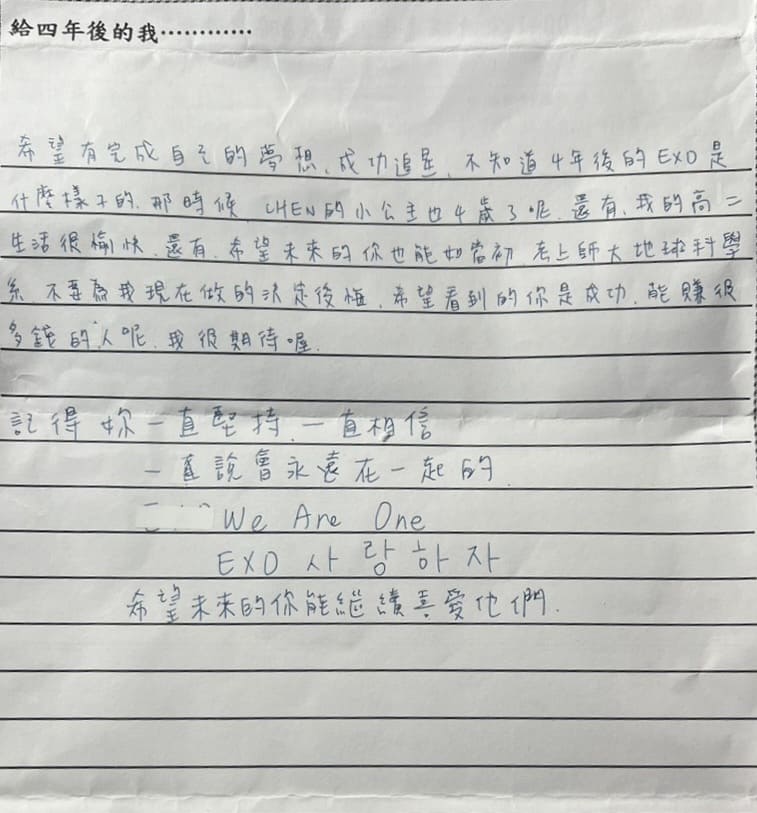 給四年後的我…………
希望有完成自己的夢想、成功追星、不知道4年後的EXO是
什麼樣子的、那時候、CHEN的小公主也4歲了呢、還有、我的高二
生活很愉快、還有、希望未來的你也能如當初考上師大地球科學
系不要為我現在做的決定後悔、希望看到的你是成功、能賺很
多錢的人呢、我很期待喔.
記得妳一直堅持、一直相信
一直說會永遠在一起的.
We Are One
EXO 사랑하자
希望未來的你能繼續喜愛他們.